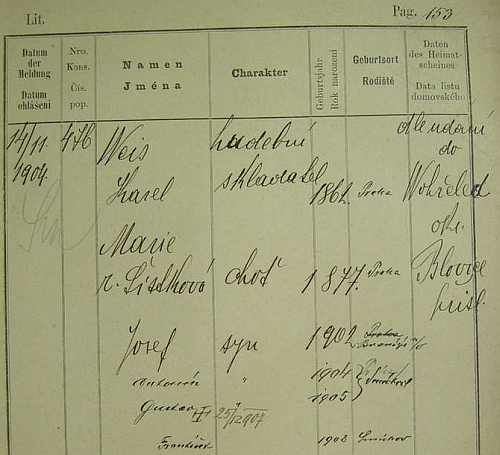 Lit.
Pag. 153
Datum der Meldung
Datum ohlášení
Nro. Kons.
Čís. pop.
Namen
Jména
Charakter
Geburtsjahr
Rok narození
Geburtsort
Rodiště
Daten des Heimatscheines
Data listu domovského
14/11. 1904. 476 Weis Karel hudební skladatel 1862. Praha
do
okr. Blovice
Marie r. Šístková choť 1877. Praha
Josef syn 1902
Antonín " 1904
Gustav " 1905
25/12 1907
František 1908 Smíchov